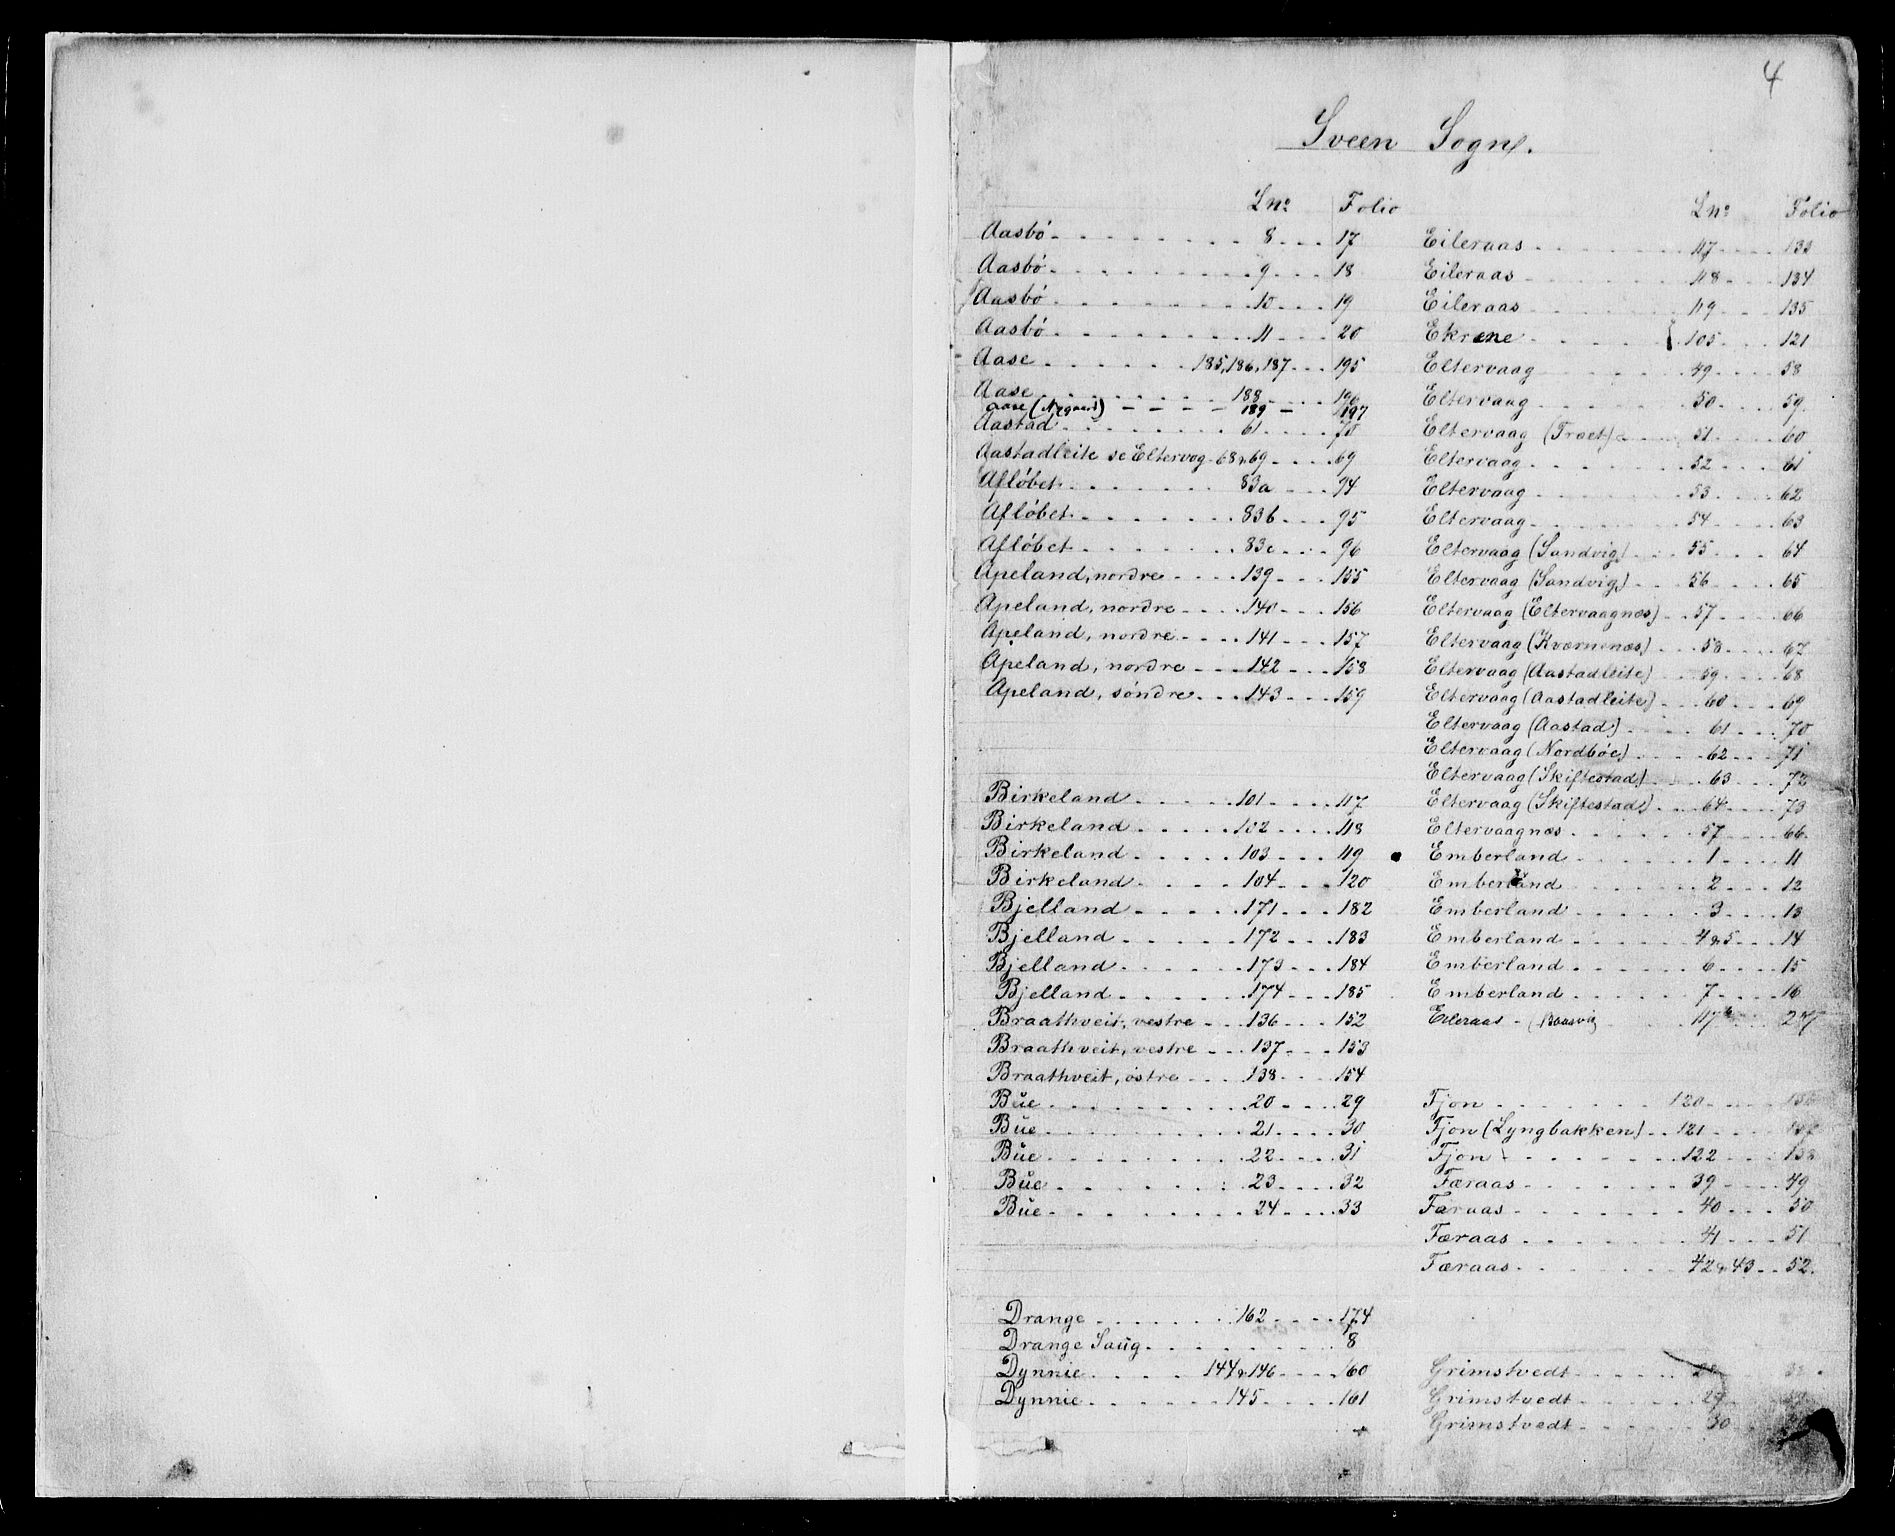 4
Sveen Sogn.
Lno Folio
Aasbö 8 17
Aasbö 9 18
Aasbö 10 19
Aasbö 11 20
Aase 185, 186, 187 195
Aase 188 196
Aase (Nygaard) 189 197
Aastad 61 70
Aastadleite se Eltervog 68 & 69 69
Aflöbet 83a 94
Aflöbet 83b 95
Aflöbet 83c 96
Apeland, nordre 139 155
Apeland, nordre 140 156
Apeland, nordre 141 157
Apeland, nordre 142 158
Apeland, söndre 143 159
Birkeland 101 117
Birkeland 102 118
Birkeland 103 119
Birkeland 104 120
Bjelland 171 182
Bjelland 172 183
Bjelland 173 184
Bjelland 174 185
Braathveit, vestre 136 152
Braathveit, vestre 137 153
Braathveit, östre 138 154
Bŭe 20 29
Bŭe 21 30
Bŭe 22 31
Bŭe 23 32
Bŭe 24 33
Drange 162 174
Drange Saŭg 8
Dynnie 144 & 146 160
Dynnie 145 161
Lno Folio
Eileraas 117 133
Eileraas 118 134
Eileraas 119 135
Ekrene 105 121
Eltervaag 49 58
Eltervaag 50 59
Eltervaag (Træet) 51 60
Eltervaag 52 61
Eltervaag 53 62
Eltervaag 54 63
Eltervaag (Sandvig) 55 64
Eltervaag (Sandvig) 56 65
Eltervaag (Eltervaagnæs) 57 66
Eltervaag (Kværnenæs) 58 67
Eltervaag (Aastadleite) 59 68
Eltervaag (Aastadleite) 60 69
Eltervaag (Aastad) 61 70
Eltervaag (Nordböe) 62 71
Eltervaag (Skiftestad) 63 72
Eltervaag (Skiftestad) 64 73
Eltervaagnæs 57 66
Emberland 1 11
Emberland 2 12
Emberland 3 13
Emberland 4 & 5 14
Emberland 6 15
Emberland 7 16
Eileraas
Fjon 120
Fjon (Lyngbakken) 121
Fjon 122 138
Færaas 39 49
Færaas 40 50
Færaas 41 51
Færaas 42 & 43 52
Grimstvedt
Grimstvedt 29
Grimstvedt 30